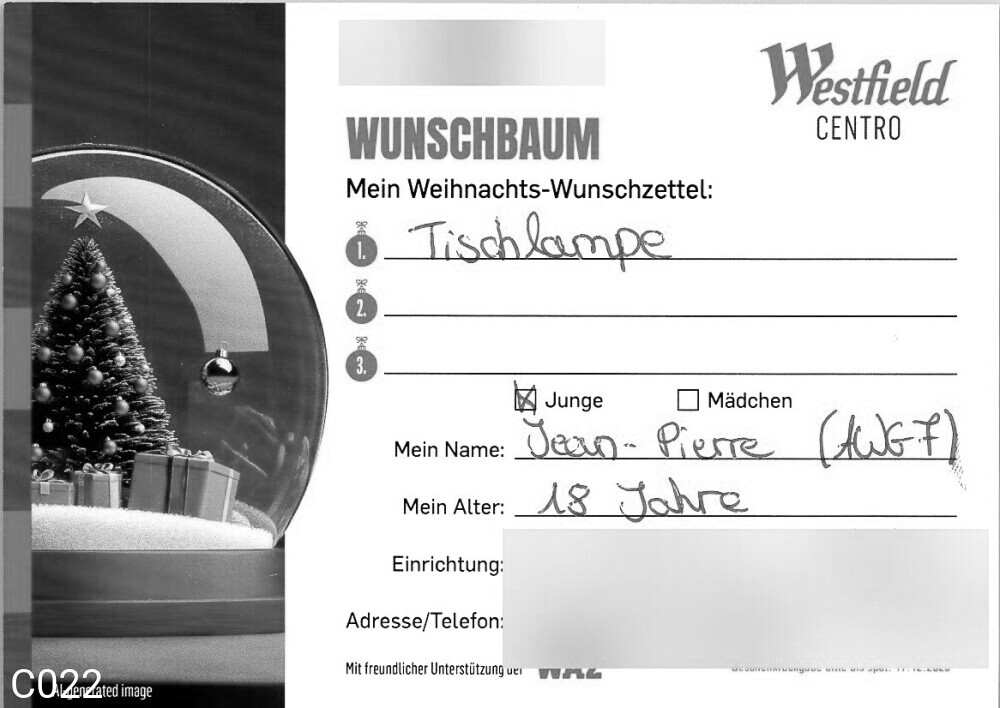 Westfield
CENTRO
WUNSCHBAUM
Mein Weihnachts-Wunschzettel:
1. Tischlampe
2.
3.
☒ Junge ☐ Mädchen
Mein Name: Jean-Pierre (AWG7)
Mein Alter: 18 Jahre
Einrichtung:
Adresse/Telefon:
Mit freundlicher Unterstützung der WAZ
C022
generated image